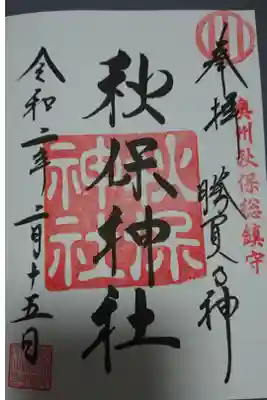 奉拝
勝負の神
奥州秋保総鎮守
秋保神社
秋保
神社
令和二年二月十五日